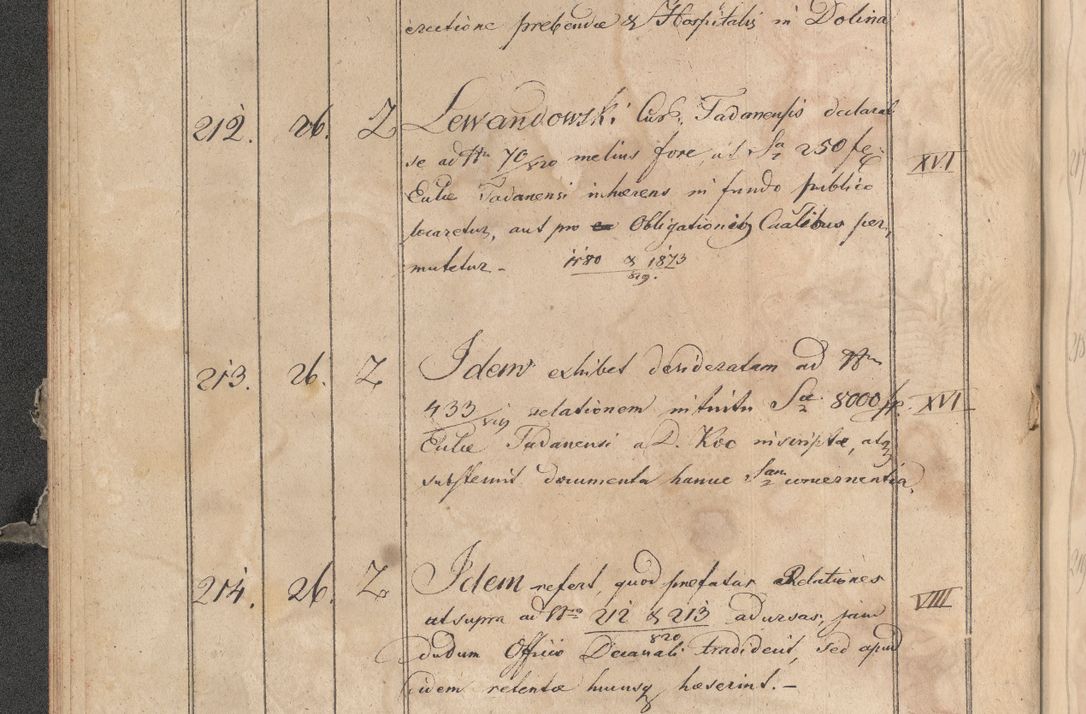 erectione prebendæ & Hospitalis in Dolina
212. 26. Z Lewandowski Cur. Tadanensis declarat
se ad Nrum 70/820 melius fore, ut Sa 250 fr.
Eccliæ Tadanensi inhærens in fundo publico
locaretur, aut pro Obligationib Cualibus per,
mutetur - 1180 & 1873
819.
XVI
213. 26. Z Idem exhibet desideratam ad Nrum
433/819 relationem intuitu Sæ 8000 fr. XVI
Eccliæ Tadanensi a D. Koc inscriptæ, atq
substernit documenta hancce Sam concernentia.
214. 26. Z Idem refert, quod præfatas Relationes
ut supra ad Nros 212 & 213 adversas, jam
820
VIII
dudum Officio Decanali tradiderit, sed apud
idem retentæ hucusq hæserint. -